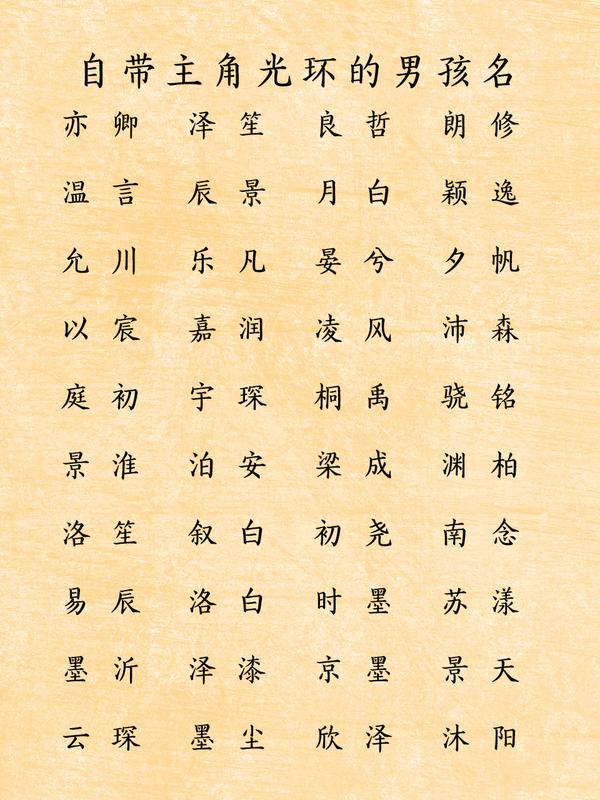 自带主角光环的男孩名
亦卿 泽笙 良哲 朗修
温言 辰景 月白 颖逸
允川 乐凡 晏兮 夕帆
以宸 嘉润 凌风 沛森
庭初 宇琛 桐禹 骁铭
景淮 泊安 梁成 渊柏
洛笙 叙白 初尧 南念
易辰 洛白 时墨 苏漾
墨沂 泽漆 京墨 景天
云琛 墨尘 欣泽 沐阳